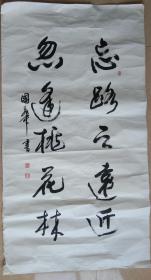 忘路之遠近
忽逢桃花林
國華書